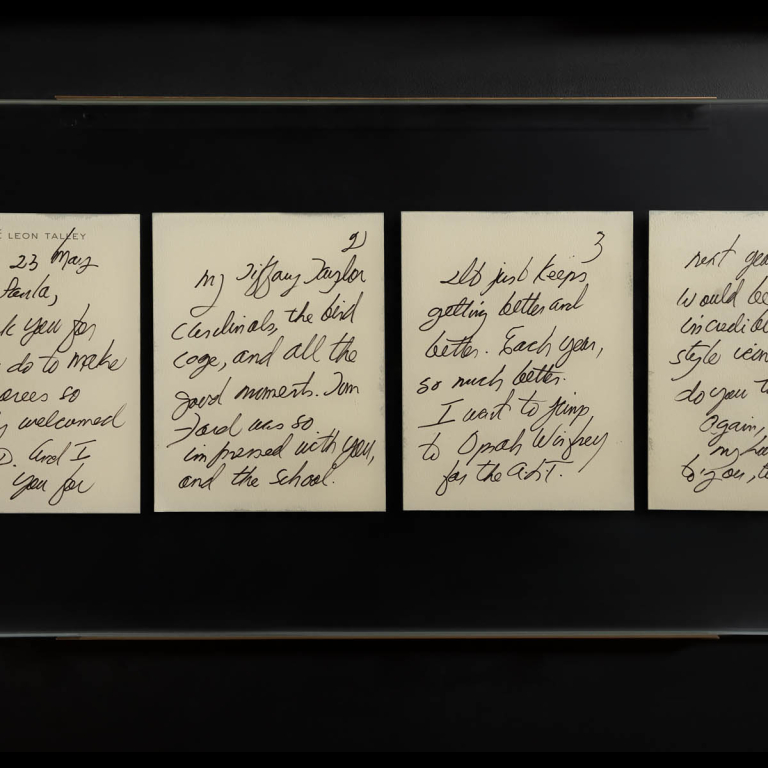 LEON TALLEY
23 May
Paula,
k you for
do to make
orees so
y welcomed
D. And I
you for
2)
my Tiffany Taylor
Cardinals, the bird
cage, and all the
good moments. Tom
Ford was so
impressed with you,
and the school.
3
It just keeps
getting better and
better. Each year,
so much better.
I want to jump
to Oprah Winfrey
for the
next yea
would be
incredib
style icon
do you t
Again,
my
to you,